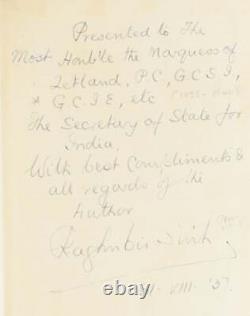 Presented to The
Most Hon'ble the Marquess of
Zetland, P.C, G.C.S.I,
& G.C.I.E, etc
The Secretary of State for
India,
With best Compliments &
all regards of the
Author
Raghubir Sinh
VIII '37.